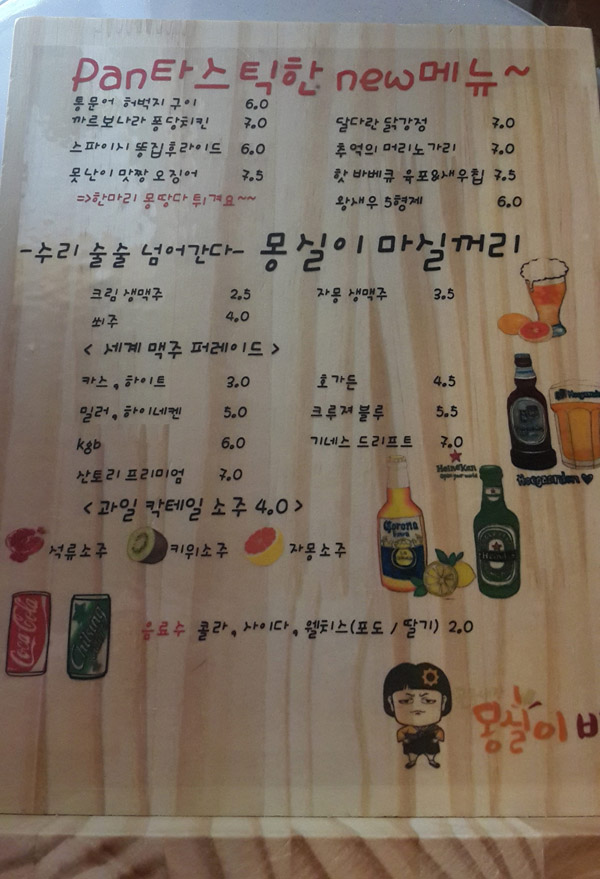 Pan타스틱한 new메뉴~
통문어 허벅지 구이 6.0
까르보나라 퐁당치킨 7.0 달다란 닭강정 7.0
스파이시 똥집후라이드 6.0 추억의 머리노가리 7.0
못난이 맛짱 오징어 7.5 핫 바베큐 육포&새우칩 7.5
=>한마리 몽땅다 튀겨요~~ 왕새우 5형제 6.0
-수리 술술 넘어간다- 몽실이 마실꺼리
크림 생맥주 2.5 자몽 생맥주 3.5
쐬주 4.0
< 세계 맥주 퍼레이드 >
카스, 하이트 3.0 호가든 4.5
밀러, 하이네켄 5.0 크루져 블루 5.5
kgb 6.0 기네스 드리프트 7.0
산토리 프리미엄 7.0
Heineken
Hoegaarden
<과일 칵테일 소주 4.0>
Corona
Extra
석류소주 키위소주 자몽소주
Coca Cola
음료수 콜라, 사이다, 웰치스(포도 / 딸기) 2.0
몽실이